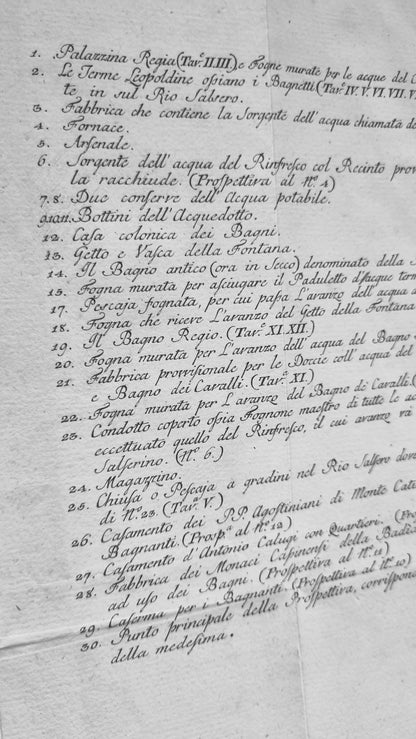 1. Palazzina Regia (Tav.ª II.III) e Fogne murate per le acque del
2. Le Terme Leopoldine ossiano i Bagnetti (Tav.ª IV.V.VI.VII.V
te in sul Rio Salsero.
3. Fabbrica che contiene la Sorgente dell'acqua chiamata
4. Fornace.
5. Arsenale.
6. Sorgente dell'acqua del Rinfresco col Recinto
la racchiude. (Prospettiva al N.º 4)
7.8. Due conserve dell'Acqua potabile.
9.10.11. Bottini dell'Acquedotto.
12. Casa colonica dei Bagni.
13. Getto e Vasca della Fontana.
14. Il Bagno antico (ora in Secco) denominato della
15. Fogna murata per asciugare il Paduletto d'acque
17. Pescaja fognata, per cui passa l'aranzo dell'acqua
18. Fogna che riceve L'aranzo del Getto della Fontana
19. Il Bagno Regio. (Tav.ª XI.XII.)
20. Fogna murata per L'aranzo dell'acqua del Bagno
21. Fabbrica provvisionale per le Doccie coll'acqua del
e Bagno dei Cavalli. (Tav.ª XI.)
22. Fogna murata per L'aranzo del Bagno de' Cavalli
23. Condotto coperto ossia Fognone maestro di tutte le
eccettuato quello del Rinfresco, il cui avanzo va
Salserino. (N.º 6.)
24. Magazzino.
25. Chiusa o Pescaja a gradini nel Rio Salsero
di N.º 23. (Tav.ª V.)
26. Casamento dei PP. Agostiniani di Monte
Bagnanti. (Prosp.ª al N.º 12)
27. Casamento d'Antonio Calugi con Quartieri.
28. Fabbrica dei Monaci Casinensi della
ad uso dei Bagni. (Prospettiva al N.º 11)
29. Caserma per i Bagnanti. (Prospettiva al N.º 10)
30. Punto principale della Prospettiva,
della medesima.